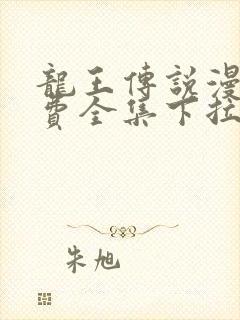 龍王傳說漫
費全集下拉
朱旭